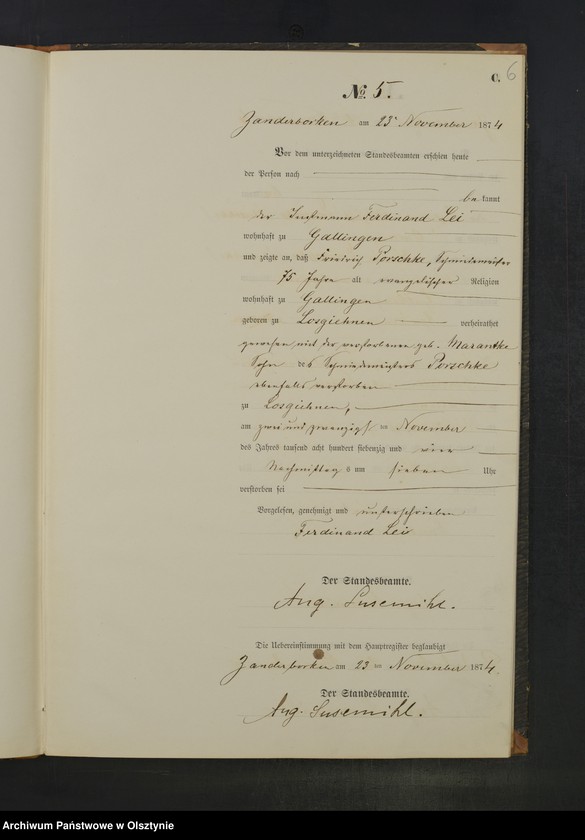 C. 6
No 5.
Zanderborken am 23 November 1874
Vor dem unterzeichneten Standesbeamten erschien heute
der Person nach
bekannt
der Instmann Ferdinand Lei
wohnhaft zu Gallingen
und zeigte an, daß Friedrich Porschke, Schmiedemeister
75 Jahre alt evangelischer Religion
wohnhaft zu Gallingen
geboren zu Losgiehnen verheirathet
gewesen mit der verstorbenen geb. Marantke
Sohn des Schmiedemeisters Porschke
ebenfalls verstorben
zu Losgiehnen,
am zwei und zwanzigsten November
des Jahres tausend acht hundert siebenzig und vier
Nachmittags um sieben Uhr
verstorben sei
Vorgelesen, genehmigt und unterschrieben
Ferdinand Lei
Der Standesbeamte.
Aug. Susemihl.
Die Uebereinstimmung mit dem Hauptregister beglaubigt
Zanderborken am 23 ten November 1874.
Der Standesbeamte.
Aug. Susemihl.
Archiwum Państwowe w Olsztynie